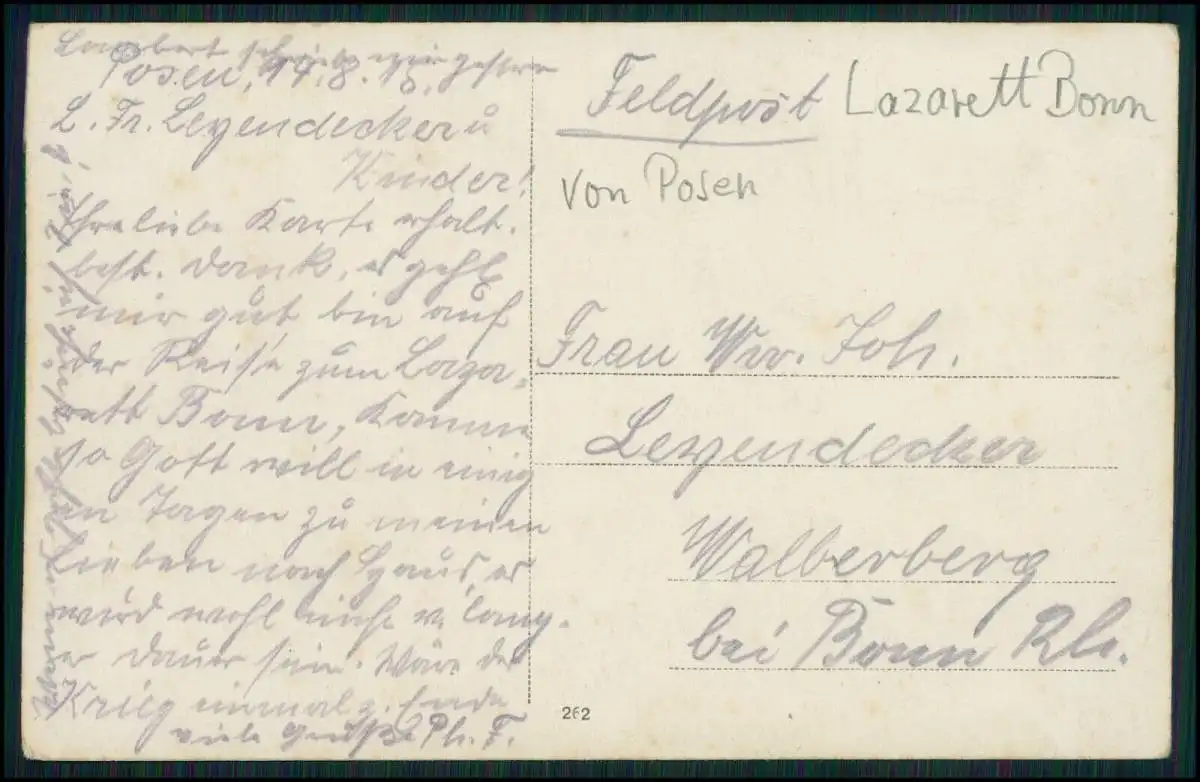 Lambert schrieb mir gestern
Posen, 17.8.
L. Fr. Leyendecker u
Kinder!
Ihre liebe Karte erhalt.
best. Dank, es geht
mir gut bin auf
der Reise zum Laza-
rett Bonn, Komme
so Gott will in einig
en Tagen zu meinen
Lieben nach Haus, es
wird wohl nicht v. lang-
er Dauer sein. Wäre der
Krieg einmal z. Ende
viele Grüße Ph. F.
Feldpost
Lazarett Bonn
von Posen
Frau Ww. Joh.
Leyendecker
Walberberg
bei Bonn Rh.
262